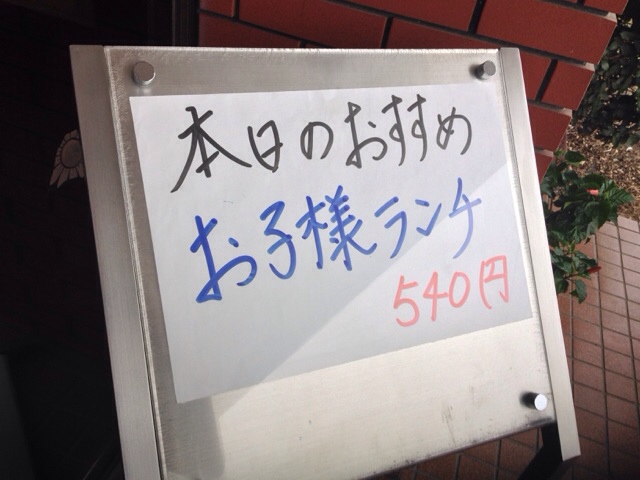 本日のおすすめ
お子様ランチ
540円